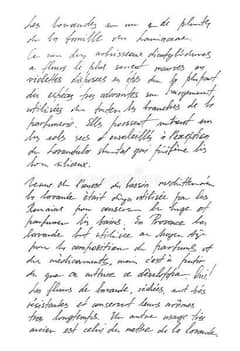 Les lavandes en un g de plantes
de la famille des Lamiaceae
Ce sont des arbrisseaux dicotylédones
a fleurs le plus souvent mauves ou
violettes disposées en épis dont la plupart
des espèces très odorantes sont largement
utilisées dans toutes les branches de la
parfumerie. Elles poussent surtout sur
les sols secs & ensoleillés à l'exception
de Lavandula stoechas qui préfère les
sols siliceux.
Venue de l'ouest du bassin méditerranéen
la lavande était déjà utilisée par les
Romains pour conserver le linge et
parfumer les bains. En Provence la
lavande fut utilisée au Moyen âge
pour la composition de parfums et
de médicaments, mais c'est à partir
du que sa culture se développa
Les fleurs de lavande, séchées, sont très
résistantes et conservent leurs arômes
très longtemps. Un autre usage très
ancien est celui de mettre de la lavande